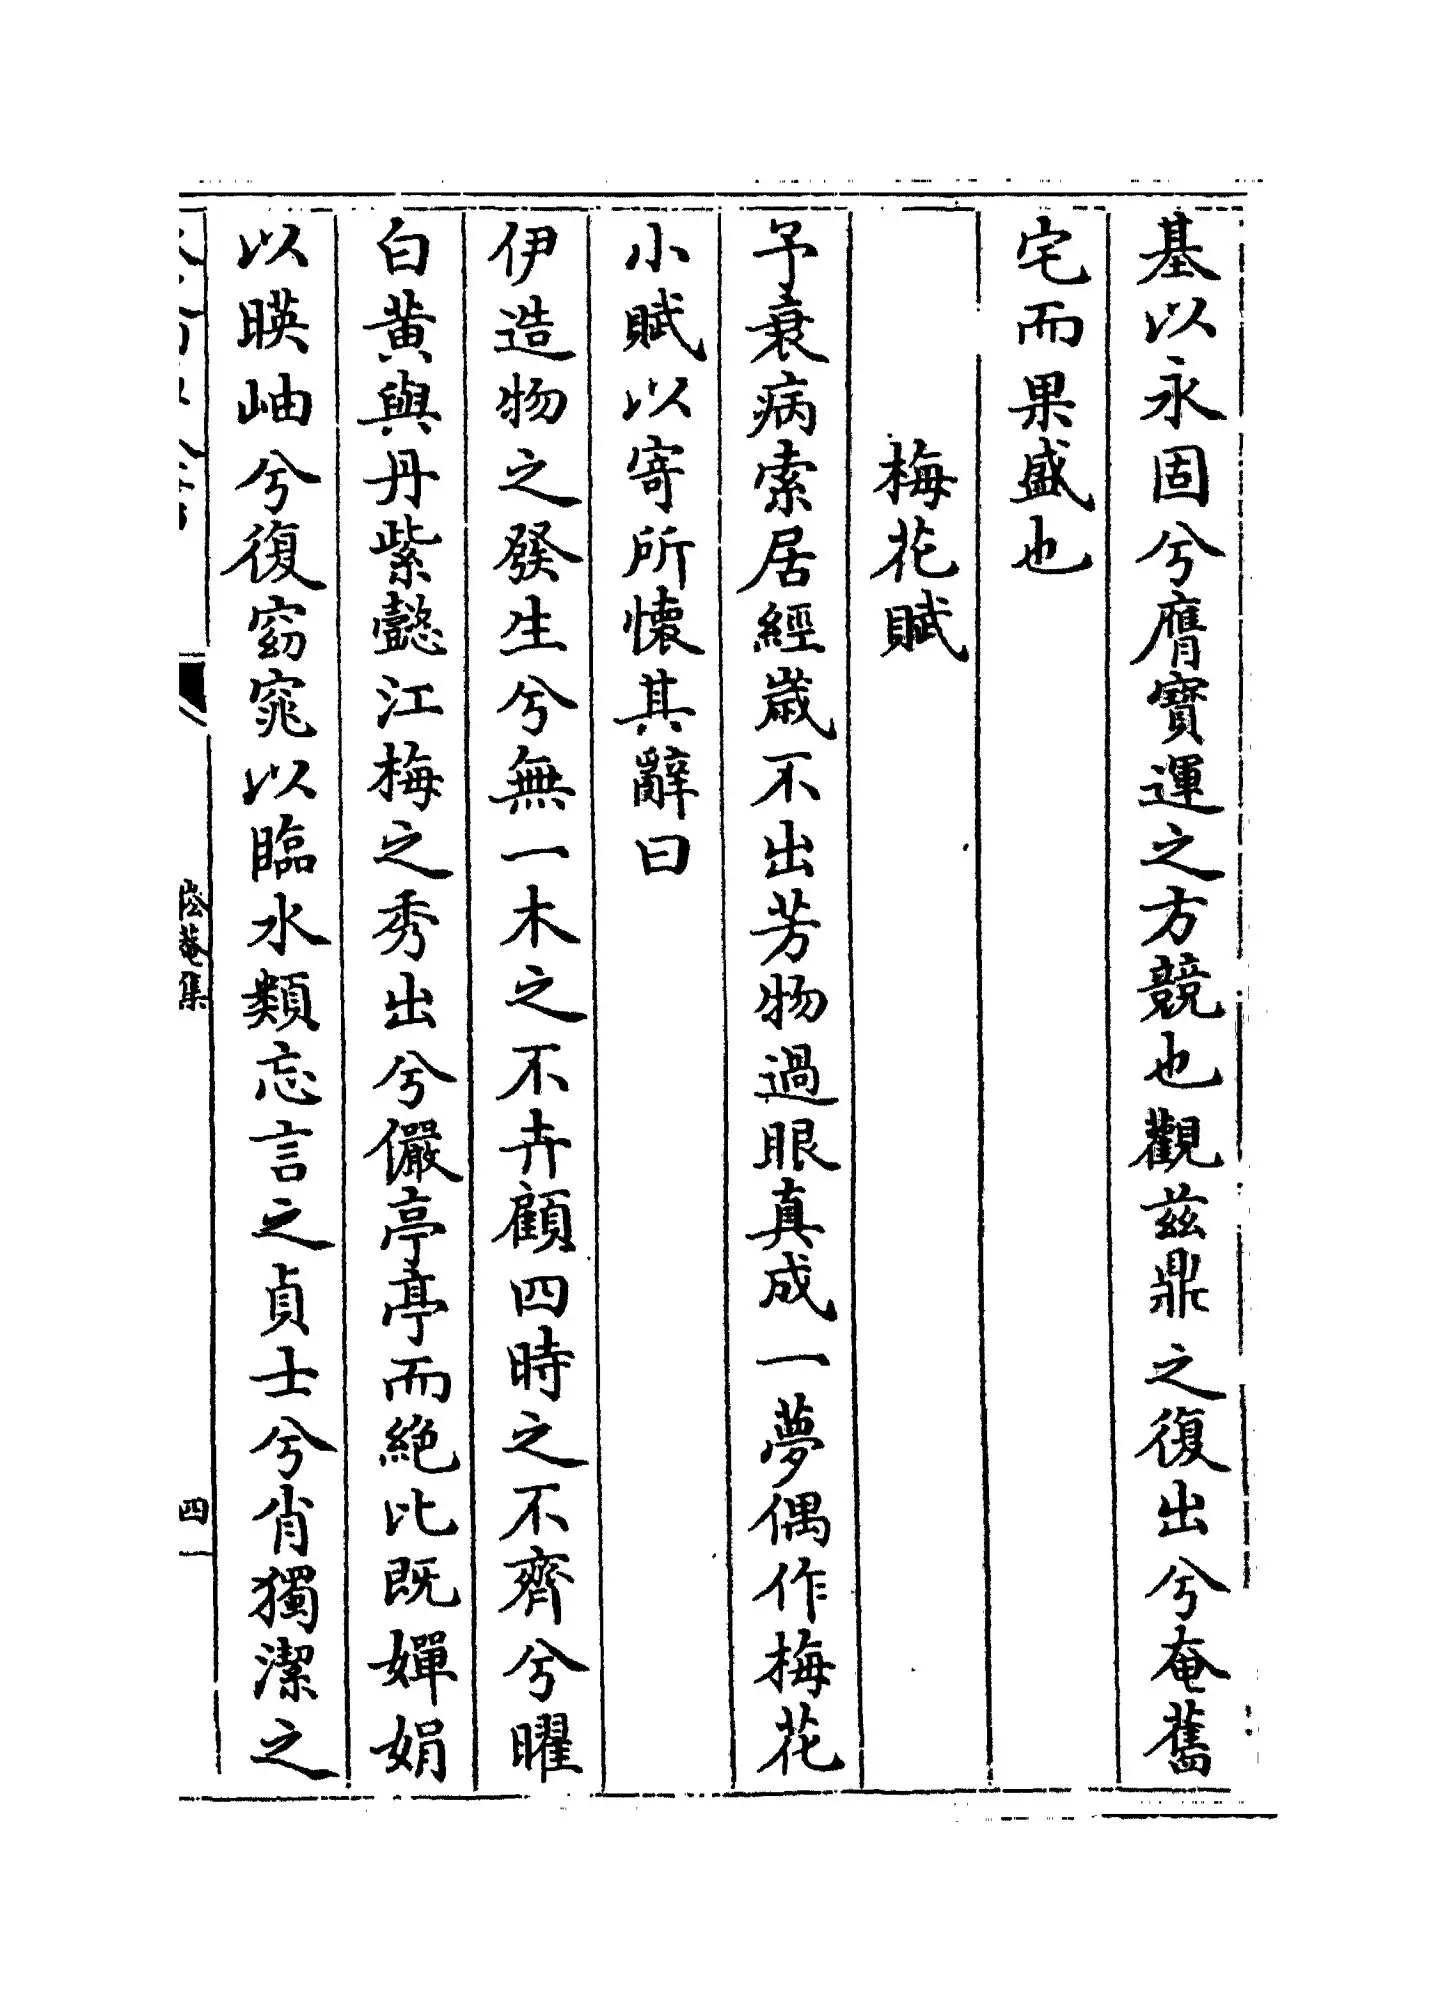 基以永固兮膺寶運之方競也觀茲鼎之復出兮奄舊
宅而果盛也
梅花賦
予衰病索居經歲不出芳物過眼真成一夢偶作梅花
小賦以寄所懷其辭曰
伊造物之發生兮無一木之不卉顧四時之不齊兮曜
白黄與丹紫懿江梅之秀出兮儼亭亭而絶比既嬋娟
以暎岫兮復窈窕以臨水類忘言之貞士兮肖獨潔之
菴集
四